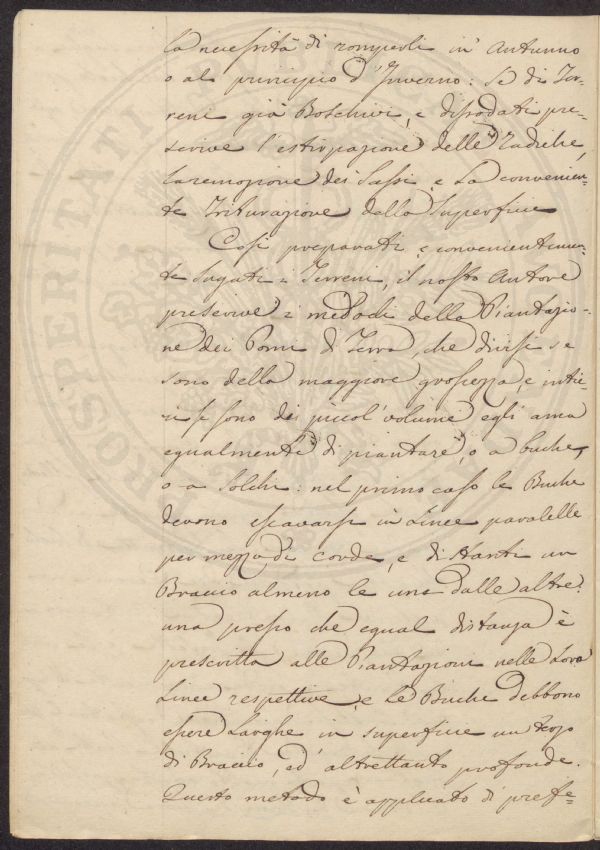 la necessità di romperli in Autunno
o al principio d'Inverno: Se di Ter-
reni già Boschivi, e dissodati pre-
scrive l'estirpazione delle Radiche,
la remozione dei Sassi, e la convenien-
te Triturazione della Superficie
Così preparati, e convenientemen-
te Sugati i Terreni, il nostro Autore
prescrive i metodi della Piantazio-
ne dei Pomi di Terra, che divisi se
sono della maggiore grossezza, e intie-
ri se sono dei piccol volume egli ama
egualmente di piantare, o a buche,
o a Solchi: nel primo caso le Buche
devono escavarsi in Linee paralelle
per mezzo di corde, e distanti un
Braccio almeno le une dalle altre:
una presso che equal distanza è
prescritta alle Piantazioni nelle Loro
Linee respettive, e le Buche debbono
essere Larghe in superficie un terzo
di Braccio, ed altrettanto profonde.
Questo metodo è applicato di prefe-
PROSPERITATI